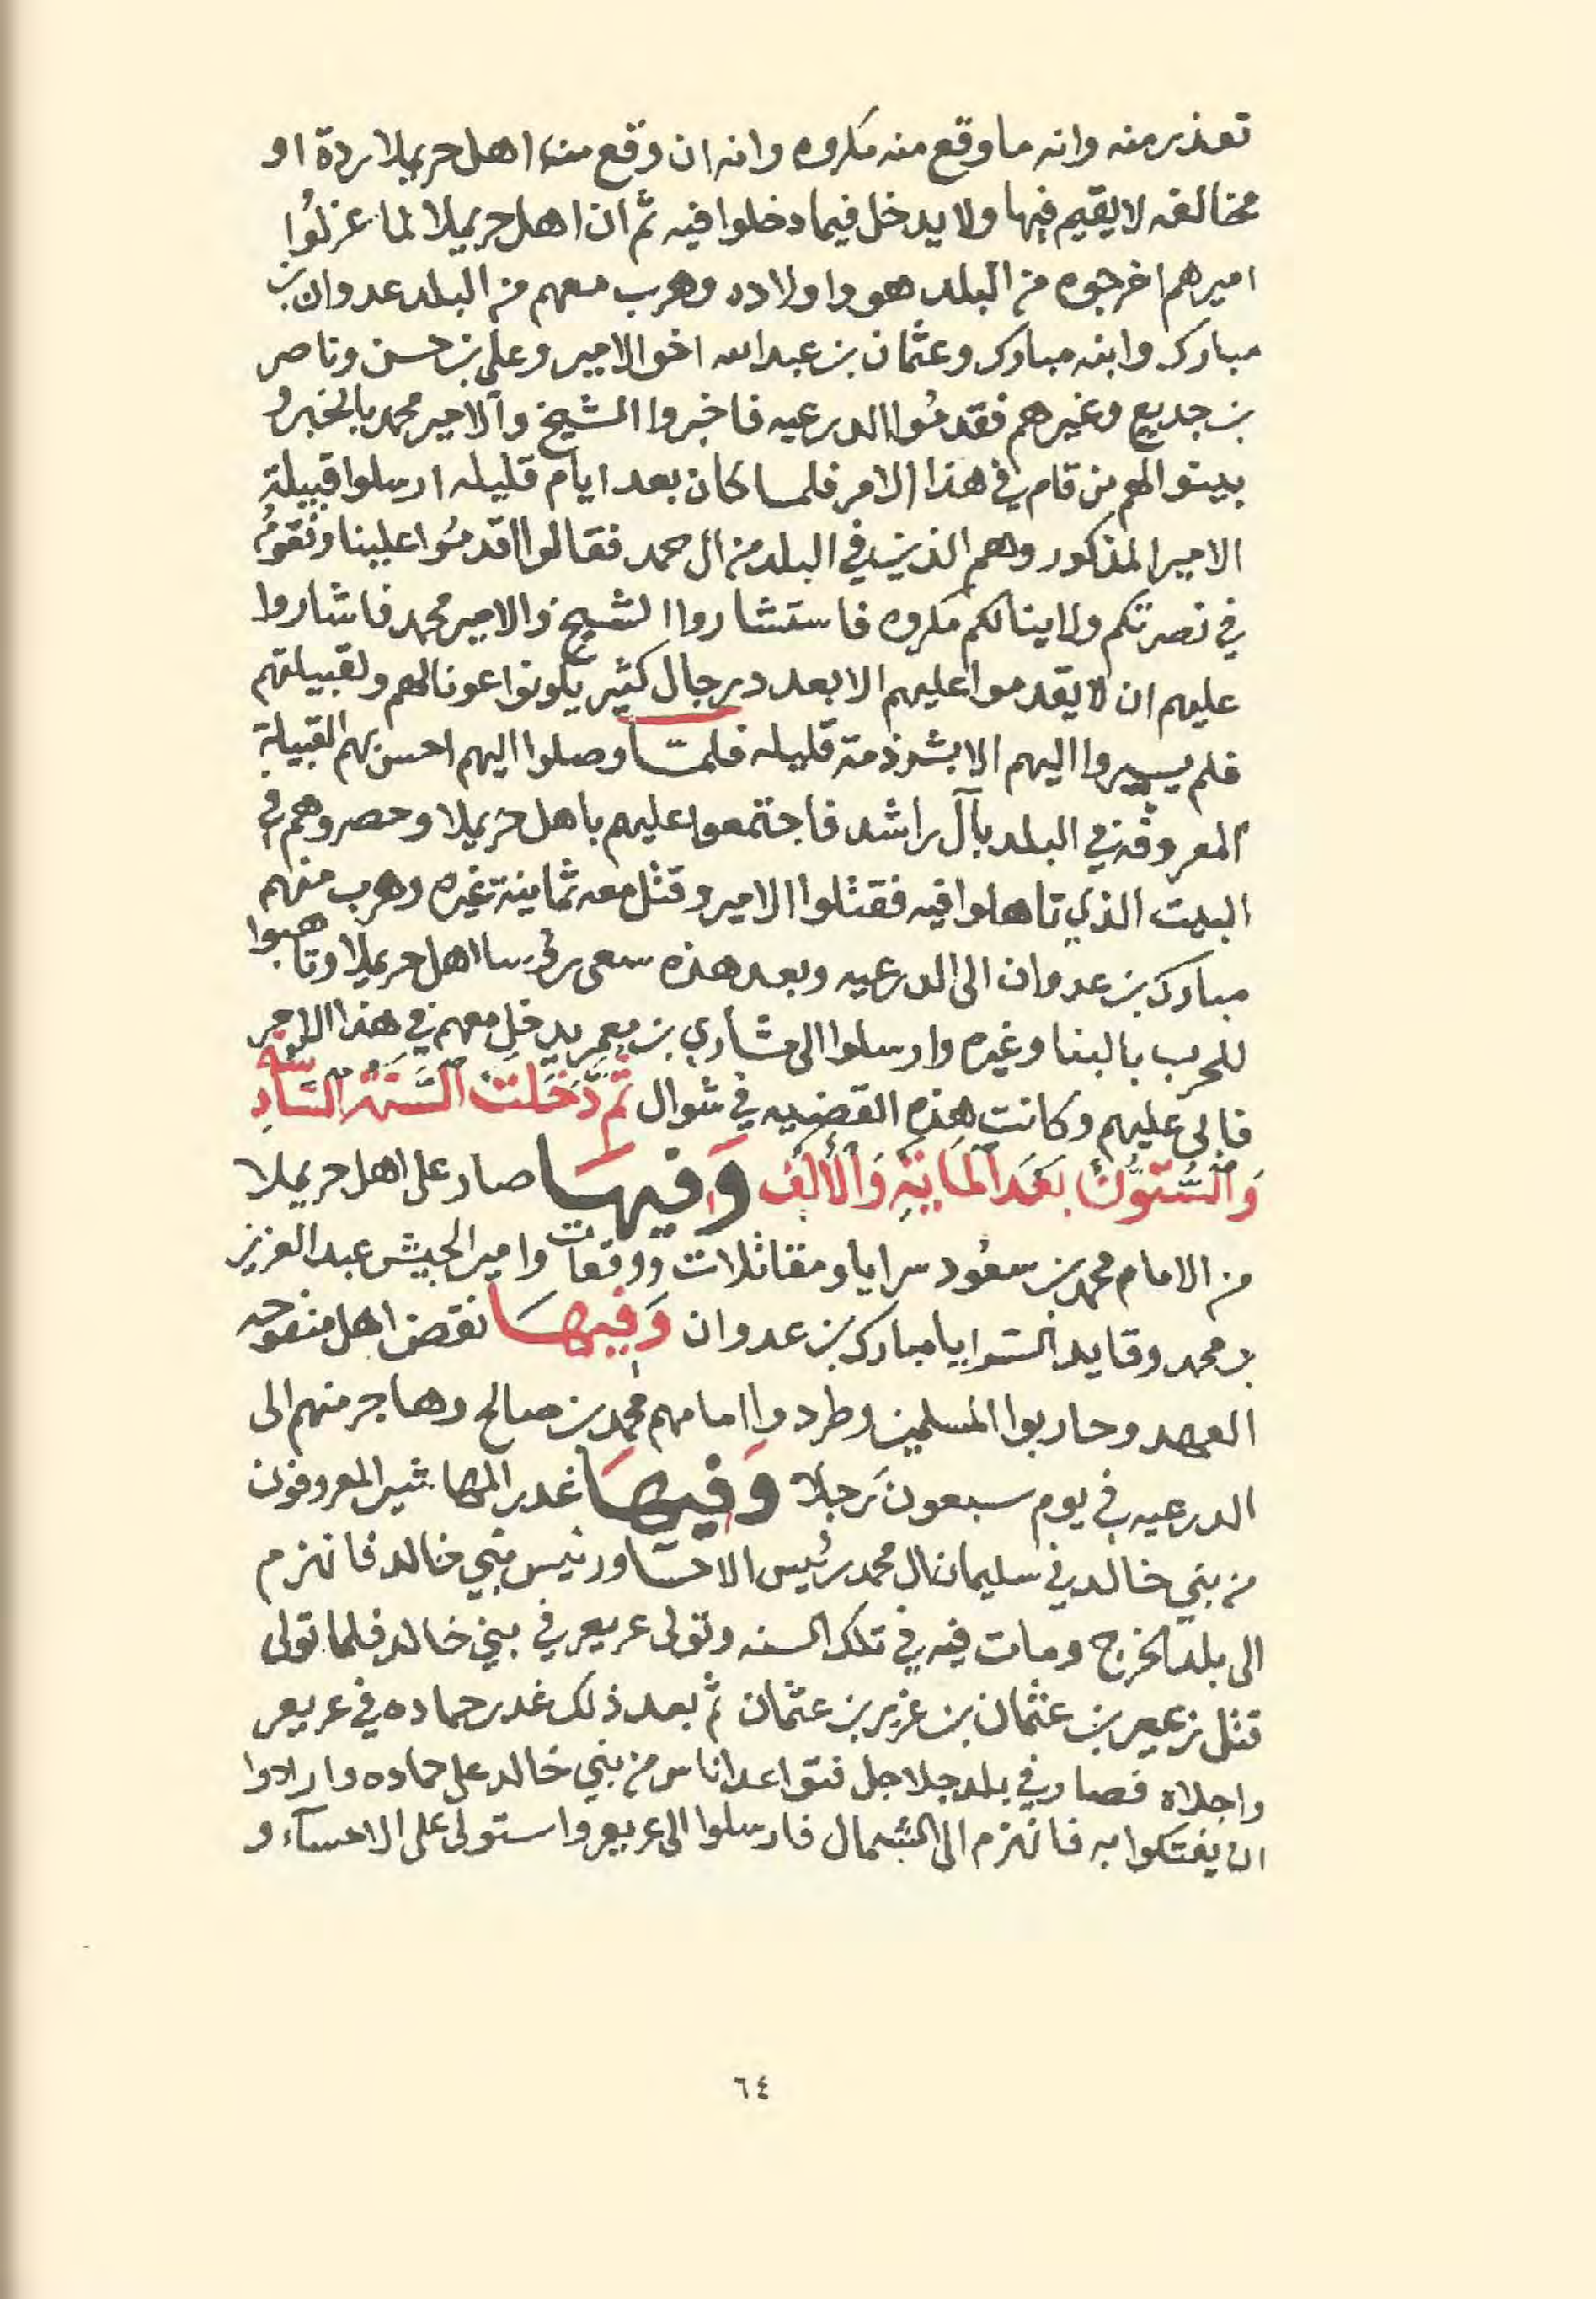 تعذر منه وانه ما وقع منه مكروه وانه ان وقع من اهل حريملا ردة او
مخالفه لا يقيم فيها ولا يدخل فيما دخلوا فيه ثم ان اهل حريملا لما عزلوا
اميرهم اخرجوه من البلد هو واولاده وهرب معهم من البلد عدوان بن
مبارك وابنه مبارك وعثمان بن عبدالله اخو الامير وعلي بن حسن وناصر
بن جديع وغيرهم فقدموا الدرعيه فاخبروا الشيخ والامير محمد بالخبر و
بينوا لهم من قام في هذا الامر فلما كان بعد ايام قليله ارسلوا قبيلة
الامير المذكور وهم الذين في البلد من ال حمد فقالوا اقدموا علينا ونقوم
في نصرتكم ولا ينالكم مكروه فاستشاروا الشيخ والامير محمد فاشاروا
عليهم ان لا يقدموا عليهم الا بعدد رجال كثير يكونوا عونا لهم ولقبيلتهم
فلم يسيروا اليهم الا بشرذمة قليله فلما وصلوا اليهم احسن بهم القبيلة
المعروفه في البلد بآل راشد فاجتمعوا عليهم باهل حريملا وحصروهم في
البيت الذي تاهلوا فيه فقتلوا الامير وقتل معه ثمانية غيره وهرب منهم
مبارك بن عدوان الى الدرعيه وبعد هذه سعى رؤسا اهل حريملا وتاهبوا
للحرب بالبنا وغيره وارسلوا الى مشاري بن معمر يدخل معهم في هذا الامر
فابى عليهم وكانت هذه القضيه في شوال ثُمَّ دَخَلَت السَّنَة السَّادِسَة
وَالسِّتُّونَ بَعْدَ المَايَةِ وَالأَلْف وَفيهَا صار على اهل حريملا
من الامام محمد بن سعود سرايا ومقاتلات ووقعات وامير الجيش عبدالعزيز
بن محمد وقايد السرايا مبارك بن عدوان وَفيهَا نقض اهل منفوحه
العهد وحاربوا المسلمين وطردوا امامهم محمد بن صالح وهاجر منهم الى
الدرعيه في يوم سبعون رجلا وَفيهَا غدر المهاشير المعروفون
من بني خالد في سليمان ال محمد رئيس الاحسا ورئيس بني خالد فانهزم
الى بلد الخرج ومات فيه في تلك السنه وتولى عريعر في بني خالد فلما تولى
قتل زعير بن عثمان بن غرير بن عثمان ثم بعد ذلك غدر حماده في عريعر
واجلاه فصار في بلد جلاجل فتواعد اناس من بني خالد على حماده وارادوا
ان يفتكوا به فانهزم الى الشمال فارسلوا الى عريعر واستولى على الاحسآء و
٦٤